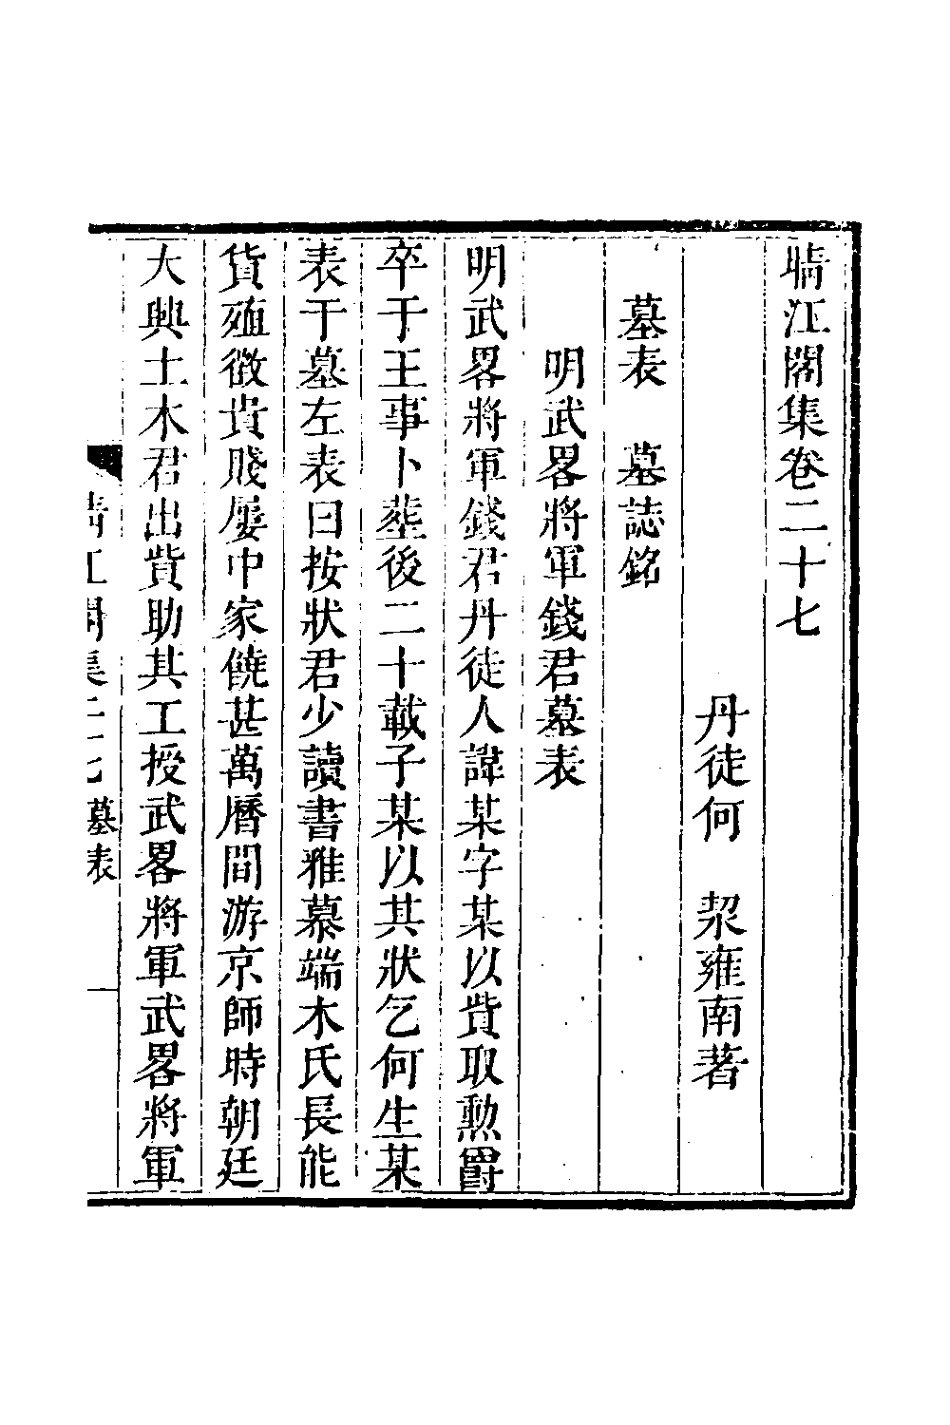 晴江閣集卷二十七
丹徒何　絜雍南著
墓表　墓誌銘
明武畧將軍錢君墓表
明武畧將軍錢君丹徒人諱某字某以貲取勲爵
卒于王事卜葬後二十載子某以其狀乞何生某
表于墓左表曰按狀君少讀書雅慕端木氏長能
貨殖徵貴賤屢中家饒甚萬曆間游京師時朝廷
大興土木君出貲助其工授武畧將軍武畧將軍
晴江閣集二十七　墓表　一